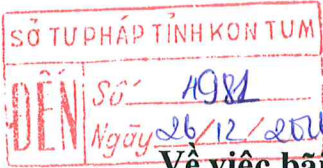 SỞ TƯ PHÁP TỈNH KON TUM
ĐẾN
Số 4981
Ngày 26/12/
Về việc bãi